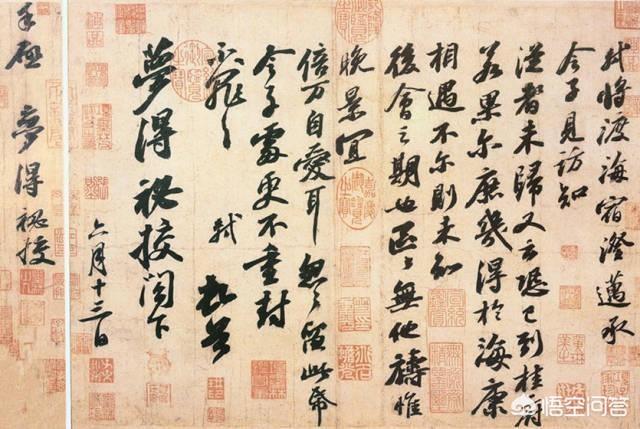 軾將渡海宿澄邁承
令子見訪知
從者未歸又云恐已到桂府
若果尔庶幾得於海康
相遇不尔則未知
後會之期也區々無他禱惟
晚景宜
倍万自愛耳忽々留此帋
令子處更不重封
不罪々
軾 頓首
夢得祕校閣下
六月十三日
手啟 夢得祕校
悟空问答